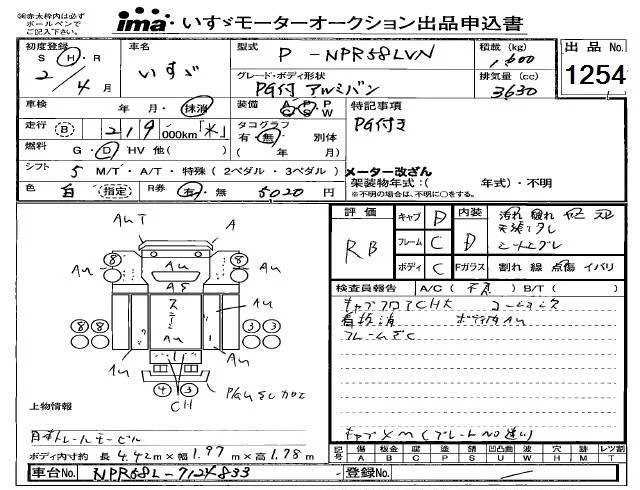 ※赤太枠内は必ず
ボールペンで
ご記入下さい。
ima いすゞモーターオークション出品申込書
初度登録 S H R 2 年 4 月
車名 いすゞ
型式 P-NPR58LVN
積載 (kg) 1,600
出品No. 1254
グレード・ボディ形状 PG付 アルミバン
排気量 (cc) 3630
車検 年 月・抹消
装備 A P C S W
特記事項
PG付き
走行 B 219 000km「*」
タコグラフ 有・無 別体 ( 年 月)
燃料 G・D HV 他( )
シフト 5 M/T・A/T・特殊(2ペダル・3ペダル)
メーター改ざん
架装物年式:( 年式)・不明
※不明の場合は、不明に○をする。
色 白 指定 R券 有・無 5020 円
評価 RB
キャブ D
内装 D
汚れ
フレーム C
ボディ C
Fガラス 割れ 線 点傷 イバリ
検査員報告 A/C( 不良 ) B/T( )
キャブフロアCH大
看板消
ボデ内AU
フレームさC
キャブXM(プレートNo違い)
AUT
A
8
8
AU
AU
AU
AS
ステ
AU
AU
8 8
3 3
AU
AU
4 3
CH
上物情報
日本トレールモービル
ボディ内寸約 長 4.42 m×幅 1.97 m×高 1.78 m
記号 傷 A 板金 B 腐 C 塗 P 錆 S 凹凸曲 U 波 W 穴 H 跡 M レツ割 T
車台No. NPR58L-7124833
登録No.